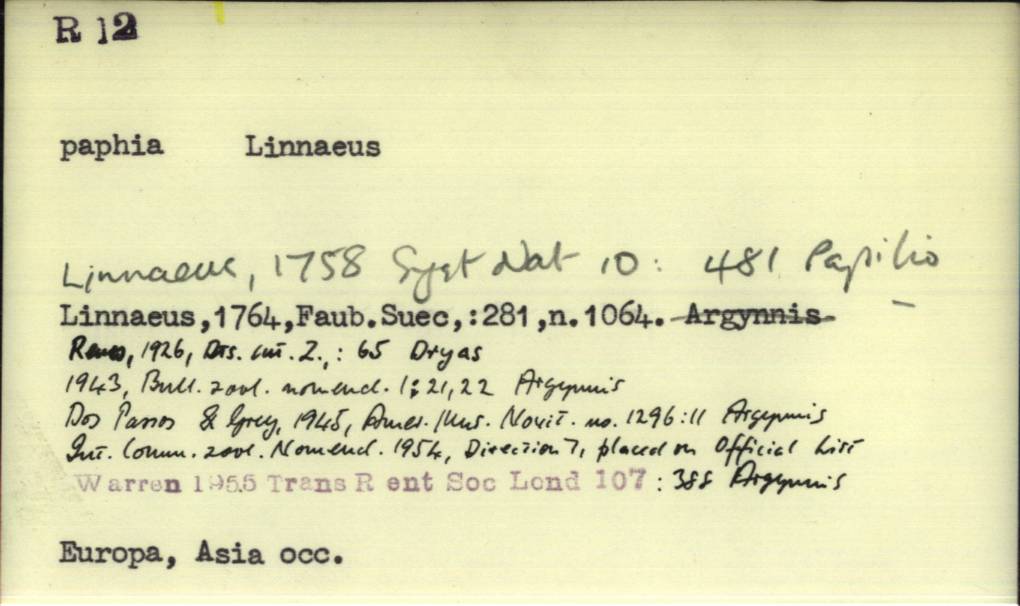 R 12
paphia Linnaeus
Linnaeus, 1758 Syst Nat 10: 481 Papilio
Linnaeus,1764,Faub.Suec,:281,n.1064. Argynnis
1926, Z.,: 65 Dryas
1943, Bull. zool. nomencl. 1: 21, 22 Argynnis
Dos Passos & Grey, 1945, Amer. Mus. Novit. no. 1296:11 Argynnis
Int. Comm. zool. Nomencl. 1954, Direction 7, placed on Official List
Warren 1955 Trans R ent Soc Lond 107: 388 Argynnis
Europa, Asia occ.